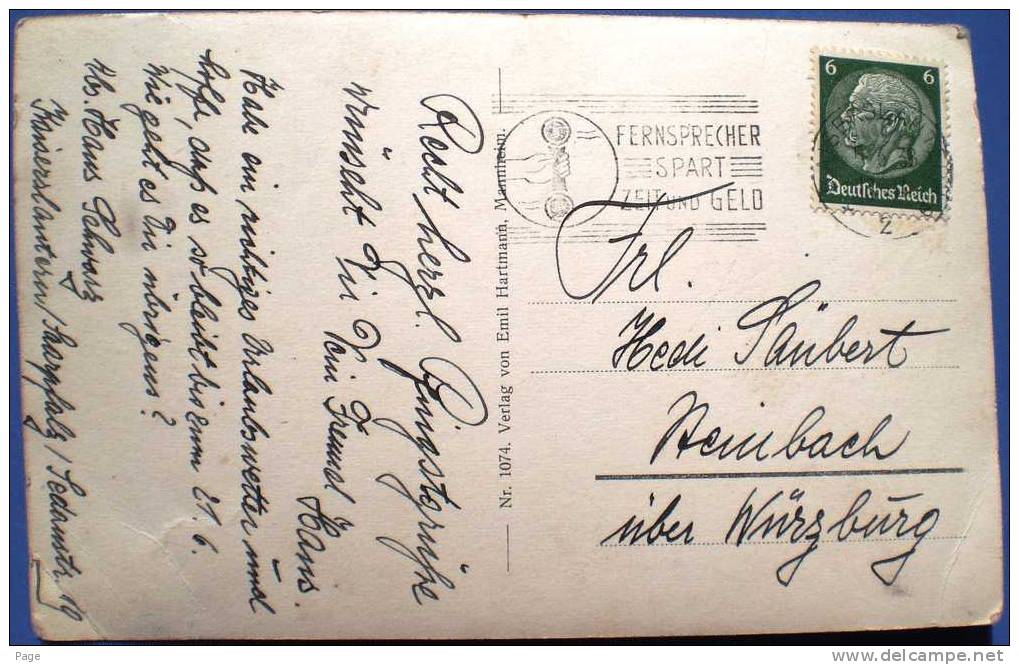 Recht herzl. Pfingstgrüße
wünscht Dir Dein Freund
Hans.
Habe ein richtiges Urlaubswetter und
hoffe, daß es so bleibt bis zum 21. 6.
Wie geht es Dir übrigens?
Abs. Hans Schwarz
Kaiserslautern / Saarpfalz / 19
Nr. 1074. Verlag von Emil Hartmann, Mannheim.
FERNSPRECHER
SPART
ZEIT UND GELD
6 6
Deutsches Reich
2
Frl.
Hedi Säubert
über Würzburg
Page
delcampe.net